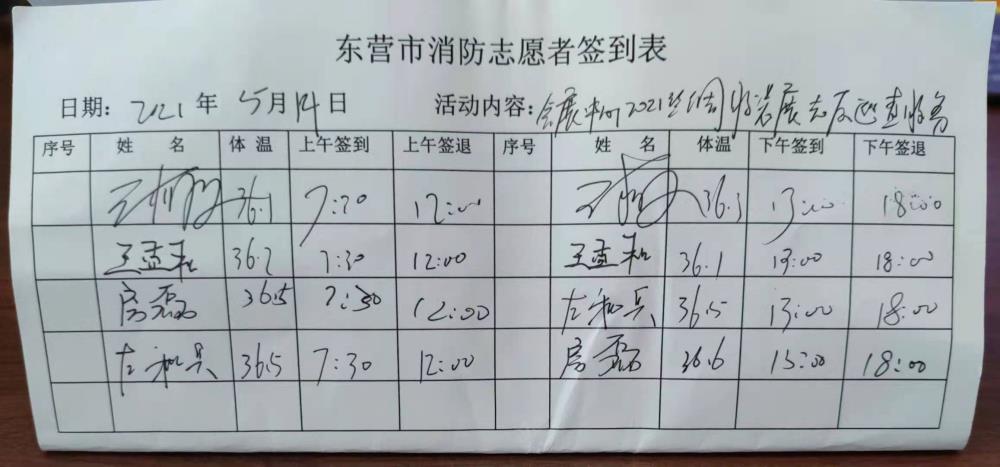 东营市消防志愿者签到表
日期: 2021 年 5月14日 活动内容: 会展中心2021 展志反巡查
序号 姓 名 体 温 上午签到 上午签退 序号 姓 名 体温 下午签到 下午签退
王 36.1 7:30 12:00 王 36.3 13:00 18:00
王孟和 36.2 7:30 12:00 王孟和 36.1 13:00 18:00
房磊 36.5 7:30 12:00 左和兵 36.5 13:00 18:00
左和兵 36.5 7:30 12:00 房磊 36.6 13:00 18:00